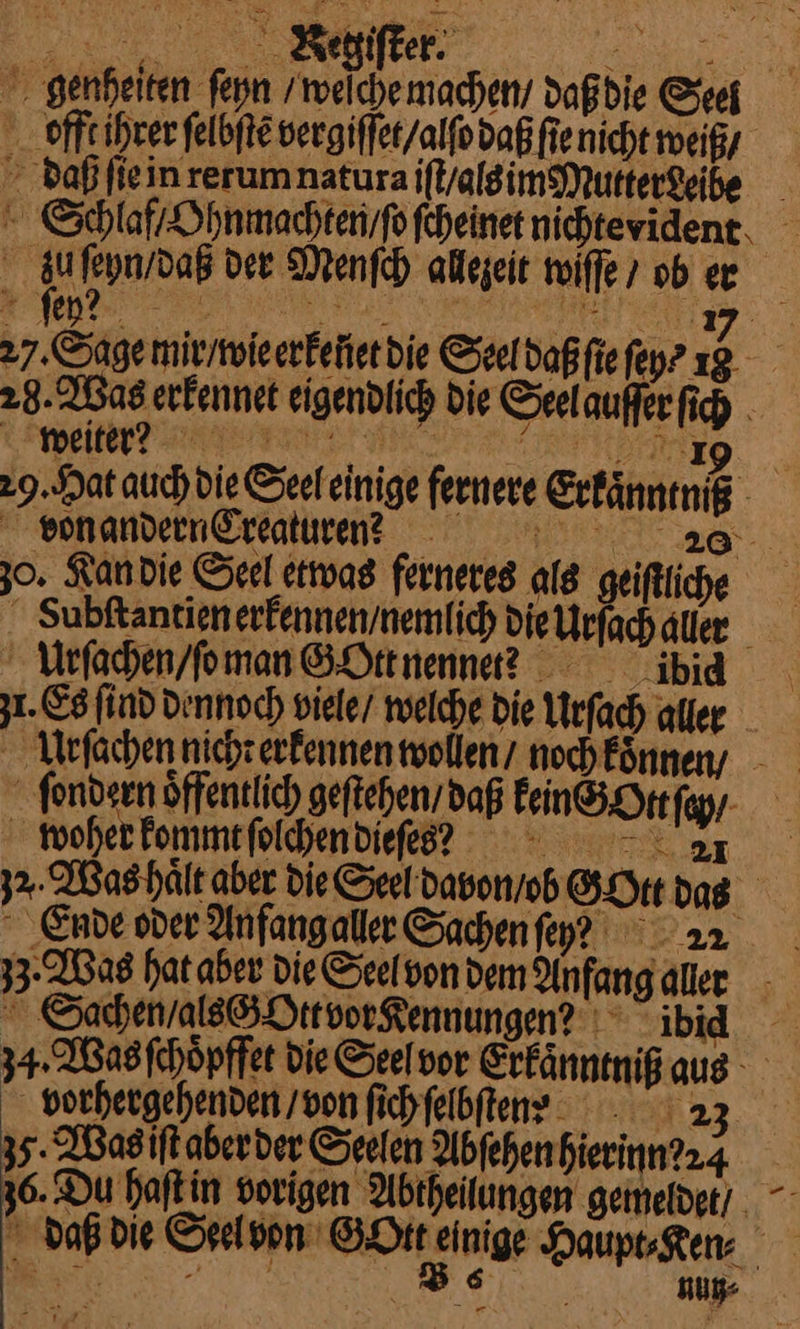 Regiſter.
genheiten ſeyn / welche machen / daß die Seel
offt ihrer ſelbſtẽ vergiſſet / alſo daß ſie nicht weiß /
daß ſie in rerum natura iſt / als im Mutter Leibe
Schlaf / Ohnmachten / ſo ſcheinet nicht evident
zu ſeyn / daß der Menſch allezeit wiſſe / ob er
ſey? 17
27. Sage mir / wie erkeñet die Seel daß ſie ſey? 18
28. Was erkennet eigendlich die Seel auſſer ſich
weiter? 19
29. Hat auch die Seel einige fernere Erkaͤnntniß
von andern Creaturen? 20
30. Kan die Seel etwas ferneres als geiſtliche
Subſtantien erkennen / nemlich die Urſach aller
Urſachen / ſo man GOtt nennet? ibid
31. Es ſind dennoch viele / welche die Urſach aller
Urſachen nicht erkennen wollen / noch koͤnnen /
ſondern oͤffentlich geſtehen / daß kein GOtt ſey /
woher kommt ſolchen dieſes? 21
32. Was haͤlt aber die Seel davon / ob GOtt das
Ende oder Anfang aller Sachen ſey? 22
33. Was hat aber die Seel von dem Anfang aller
Sachen / als GOtt vor Kennungen? ibid
34. Was ſchoͤpffet die Seel vor Erkaͤnntniß aus
vorhergehenden / von ſich ſelbſten? 23
35. Was iſt aber der Seelen Abſehen hierinn? 24
36. Du haſt in vorigen Abtheilungen gemeldet /
daß die Seel von GOtt einige Haupt⸗Ken⸗
B 6 nun⸗